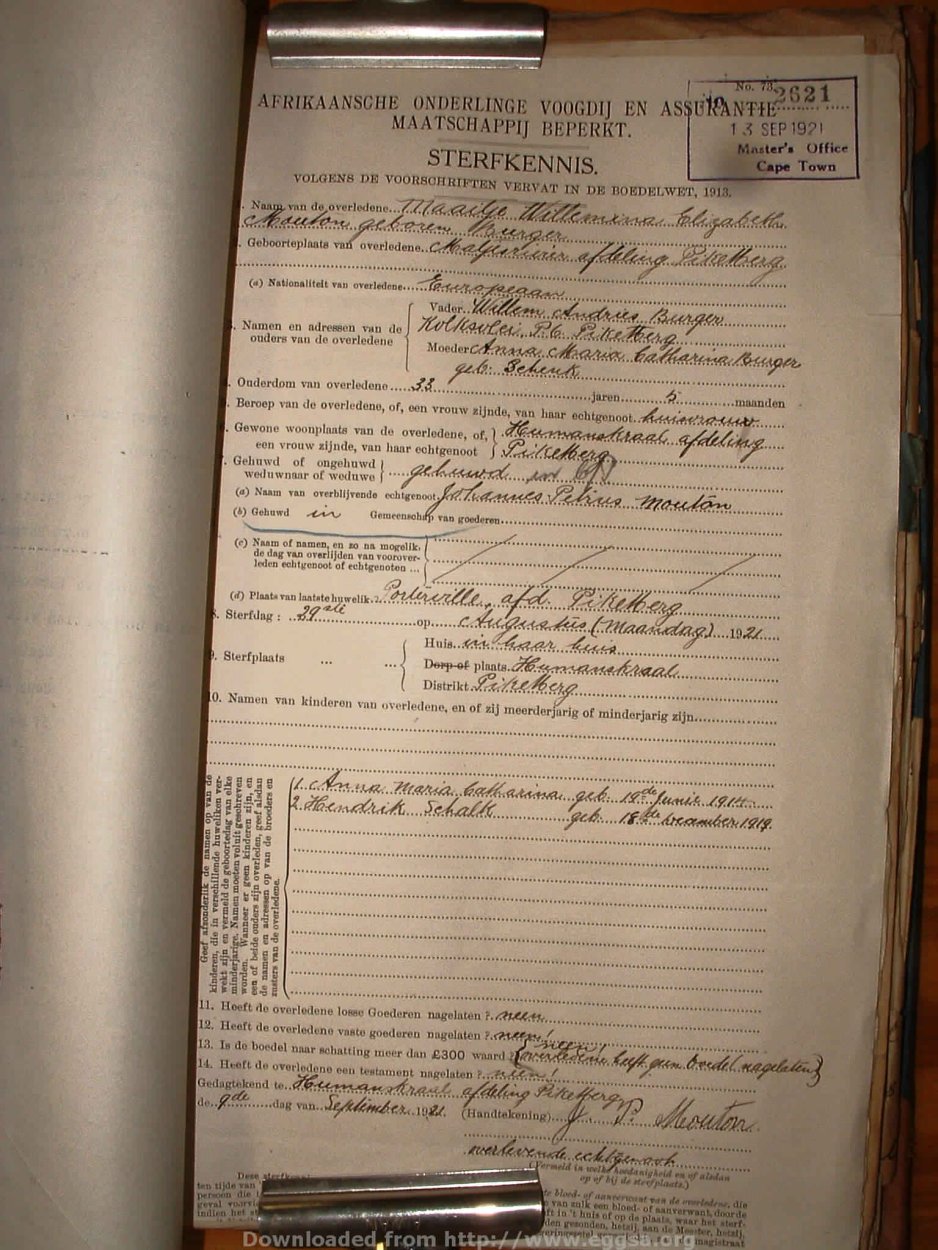 No. 73. 2621
13 SEP 1921
Master's Office
Cape Town
AFRIKAANSCHE ONDERLINGE VOOGDIJ EN ASSURANTIE
MAATSCHAPPIJ BEPERKT.
STERFKENNIS.
VOLGENS DE VOORSCHRIFTEN VERVAT IN DE BOEDELWET, 1913.
Naam van de overledene Maaitje Willemina Elizabeth
Mouton geboren Burger
Geboorteplaats van overledene afdeling Piketberg
(a) Nationaliteit van overledene Europeaan
Vader Willem Andries Burger
Namen en adressen van de
ouders van de overledene
Kolksvlei P.C. Piketberg
Moeder Anna Maria Catharina Burger
geb. Schenk
Ouderdom van overledene 33 jaren 5 maanden
Beroep van de overledene, of, een vrouw zijnde, van haar echtgenoot huisvrouw
Gewone woonplaats van de overledene, of,
een vrouw zijnde, van haar echtgenoot
Humanskraal afdeling
Piketberg
Gehuwd of ongehuwd
weduwnaar of weduwe
gehuwd in
(a) Naam van overblijvende echtgenoot Johannes Petrus Mouton
(b) Gehuwd in Gemeenschap van goederen
(c) Naam of namen, en zo na mogelik,
de dag van overlijden van voorover-
leden echtgenoot of echtgenoten ...
(d) Plaats van laatste huwelik Porterville, afd. Piketberg
8. Sterfdag : 29ste op Augustus (Maandag) 1921
Huis in haar huis
9. Sterfplaats ... ...
Dorp of plaats Humanskraal
Distrikt Piketberg
10. Namen van kinderen van overledene, en of zij meerderjarig of minderjarig zijn
Geef afzonderlik de namen op van de
kinderen, die in verschillende huweliken ver-
wekt zijn en vermeld de geboortedag van elke
minderjarige. Namen moeten voluit geschreven
worden. Wanneer er geen kinderen zijn, en
een of beide ouders zijn overleden, geef alsdan
de namen en adressen op van de broeders en
zusters van de overledene.
1. Anna Maria Catharina geb. 19de Junie 1914
2. Hendrik Schalk geb. 18de December 1919.
11. Heeft de overledene losse Goederen nagelaten ? neen
12. Heeft de overledene vaste goederen nagelaten ? neen!
13. Is de boedel naar schatting meer dan £300 waard ? neen!
(overledene heeft geen boedel nagelaten)
14. Heeft de overledene een testament nagelaten ? neen!
Gedagtekend te Humanskraal afdeling Piketberg
de 9de dag van September 1921 (Handtekening) J. P. Mouton
overlevende echtgenoot
(Vermeld in welke hoedanigheid en of alsdan
op of bij de sterfplaats.)
Deze
ten tijde van
persoon die
geval
indien het
bloed- of aanverwant van de overledene, die
van zulk een bloed- of aanverwant, door de
in 't huis of op de plaats, waar het sterf-
den gezonden, hetzij, aan de Meester, hetzij,
magistraat
Downloaded from http://www.eggsa.org